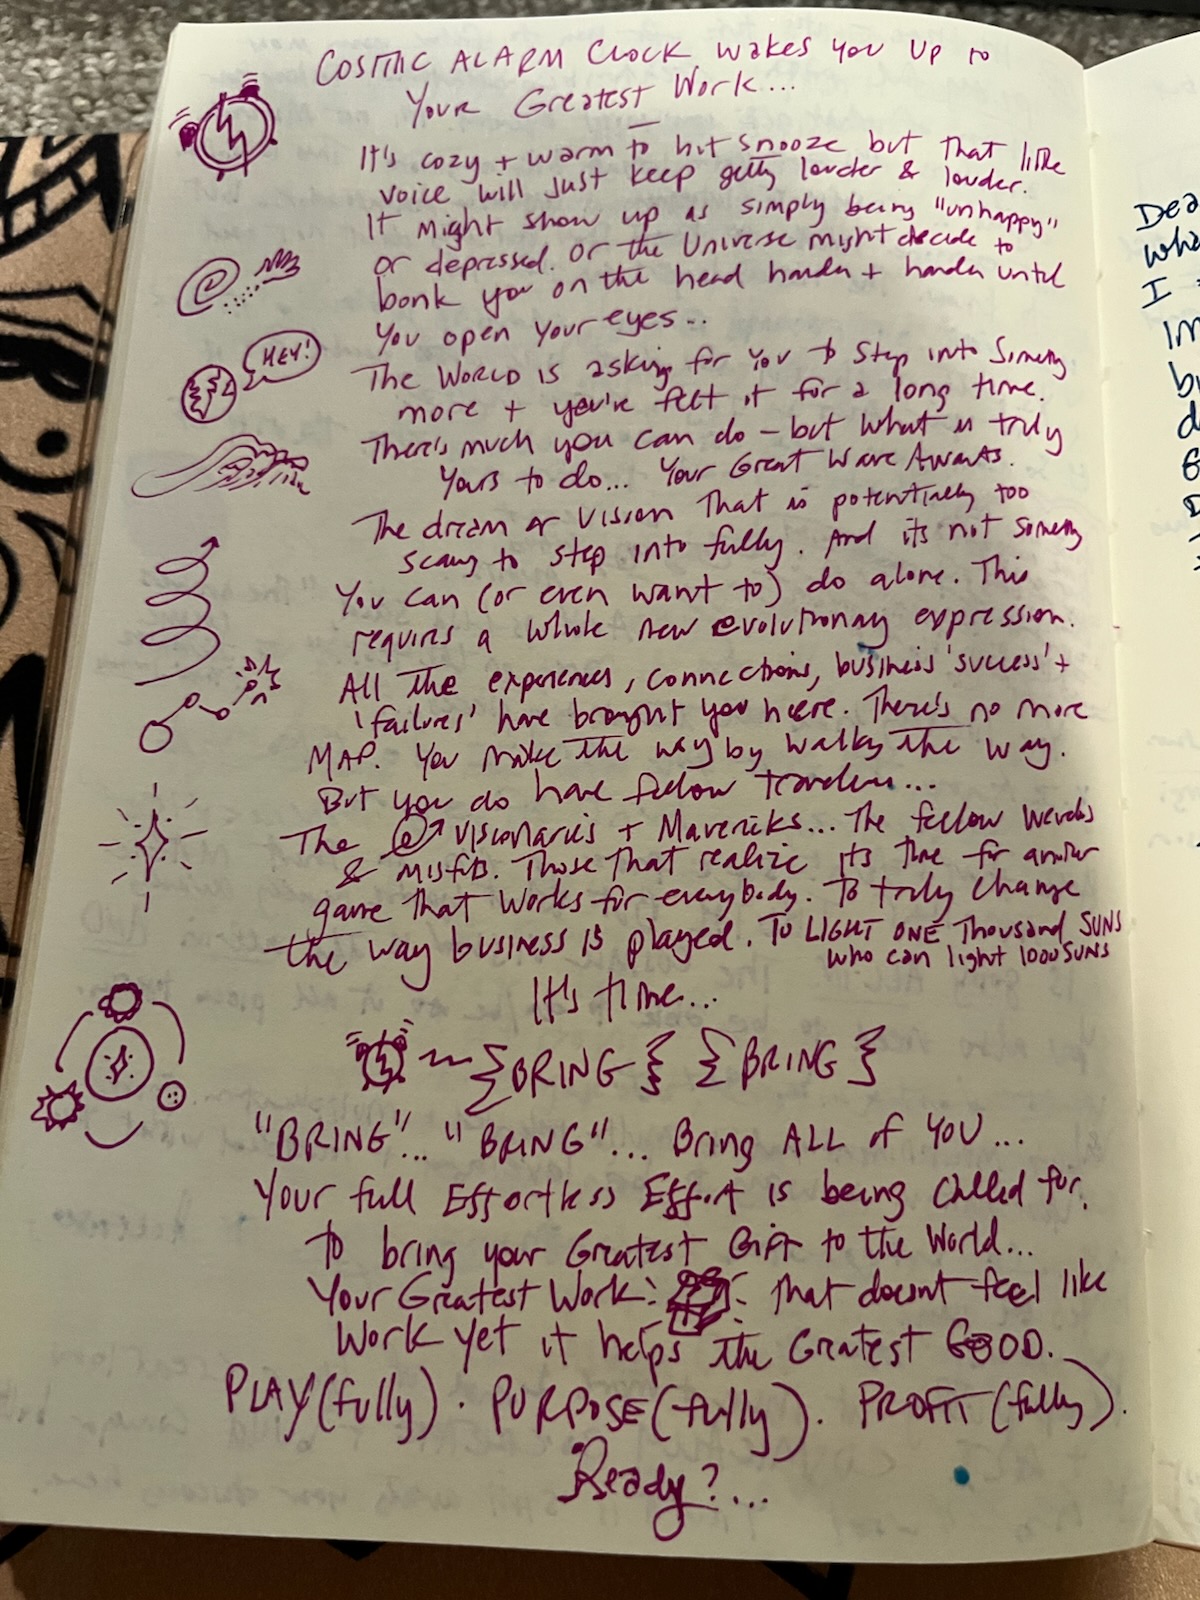 COSMIC ALARM CLOCK wakes you up to
Your Greatest Work...
It's cozy + warm to hit snooze but that little
voice will just keep getting louder & louder.
It might show up as simply being "unhappy"
or depressed. Or the Universe might decide to
bonk you on the head harder + harder until
You open your eyes...
HEY!
The WORLD is asking for You to step into Something
more + you've felt it for a long time.
There's much you can do – but what is truly
Yours to do... Your Great Wave Awaits.
The dream or vision that is potentially too
scary to step into fully. And its not something
You can (or even want to) do alone. This
requires a whole new evolutionary expression.
All the experiences, connections, business 'success' +
'failures' have brought you here. There's no more
MAP. You make the way by walking the way.
But you do have fellow travelers...
The visionaries + Mavericks... The fellow Weirdos
& misfits. Those that realize its time for another
game that works for everybody. To truly change
the way business is played. To LIGHT ONE Thousand SUNS
who can light 1000 SUNS
It's time...
{BRING} {BRING}
"BRING"... "BRING"... Bring ALL of YOU...
Your full Effortless Effort is being called for.
To bring your Greatest Gift to the World...
Your Greatest Work that doesnt feel like
Work yet it helps the Greatest GOOD.
PLAY(fully). PURPOSE(fully). PROFIT(fully).
Ready?...
Dea
wha
I